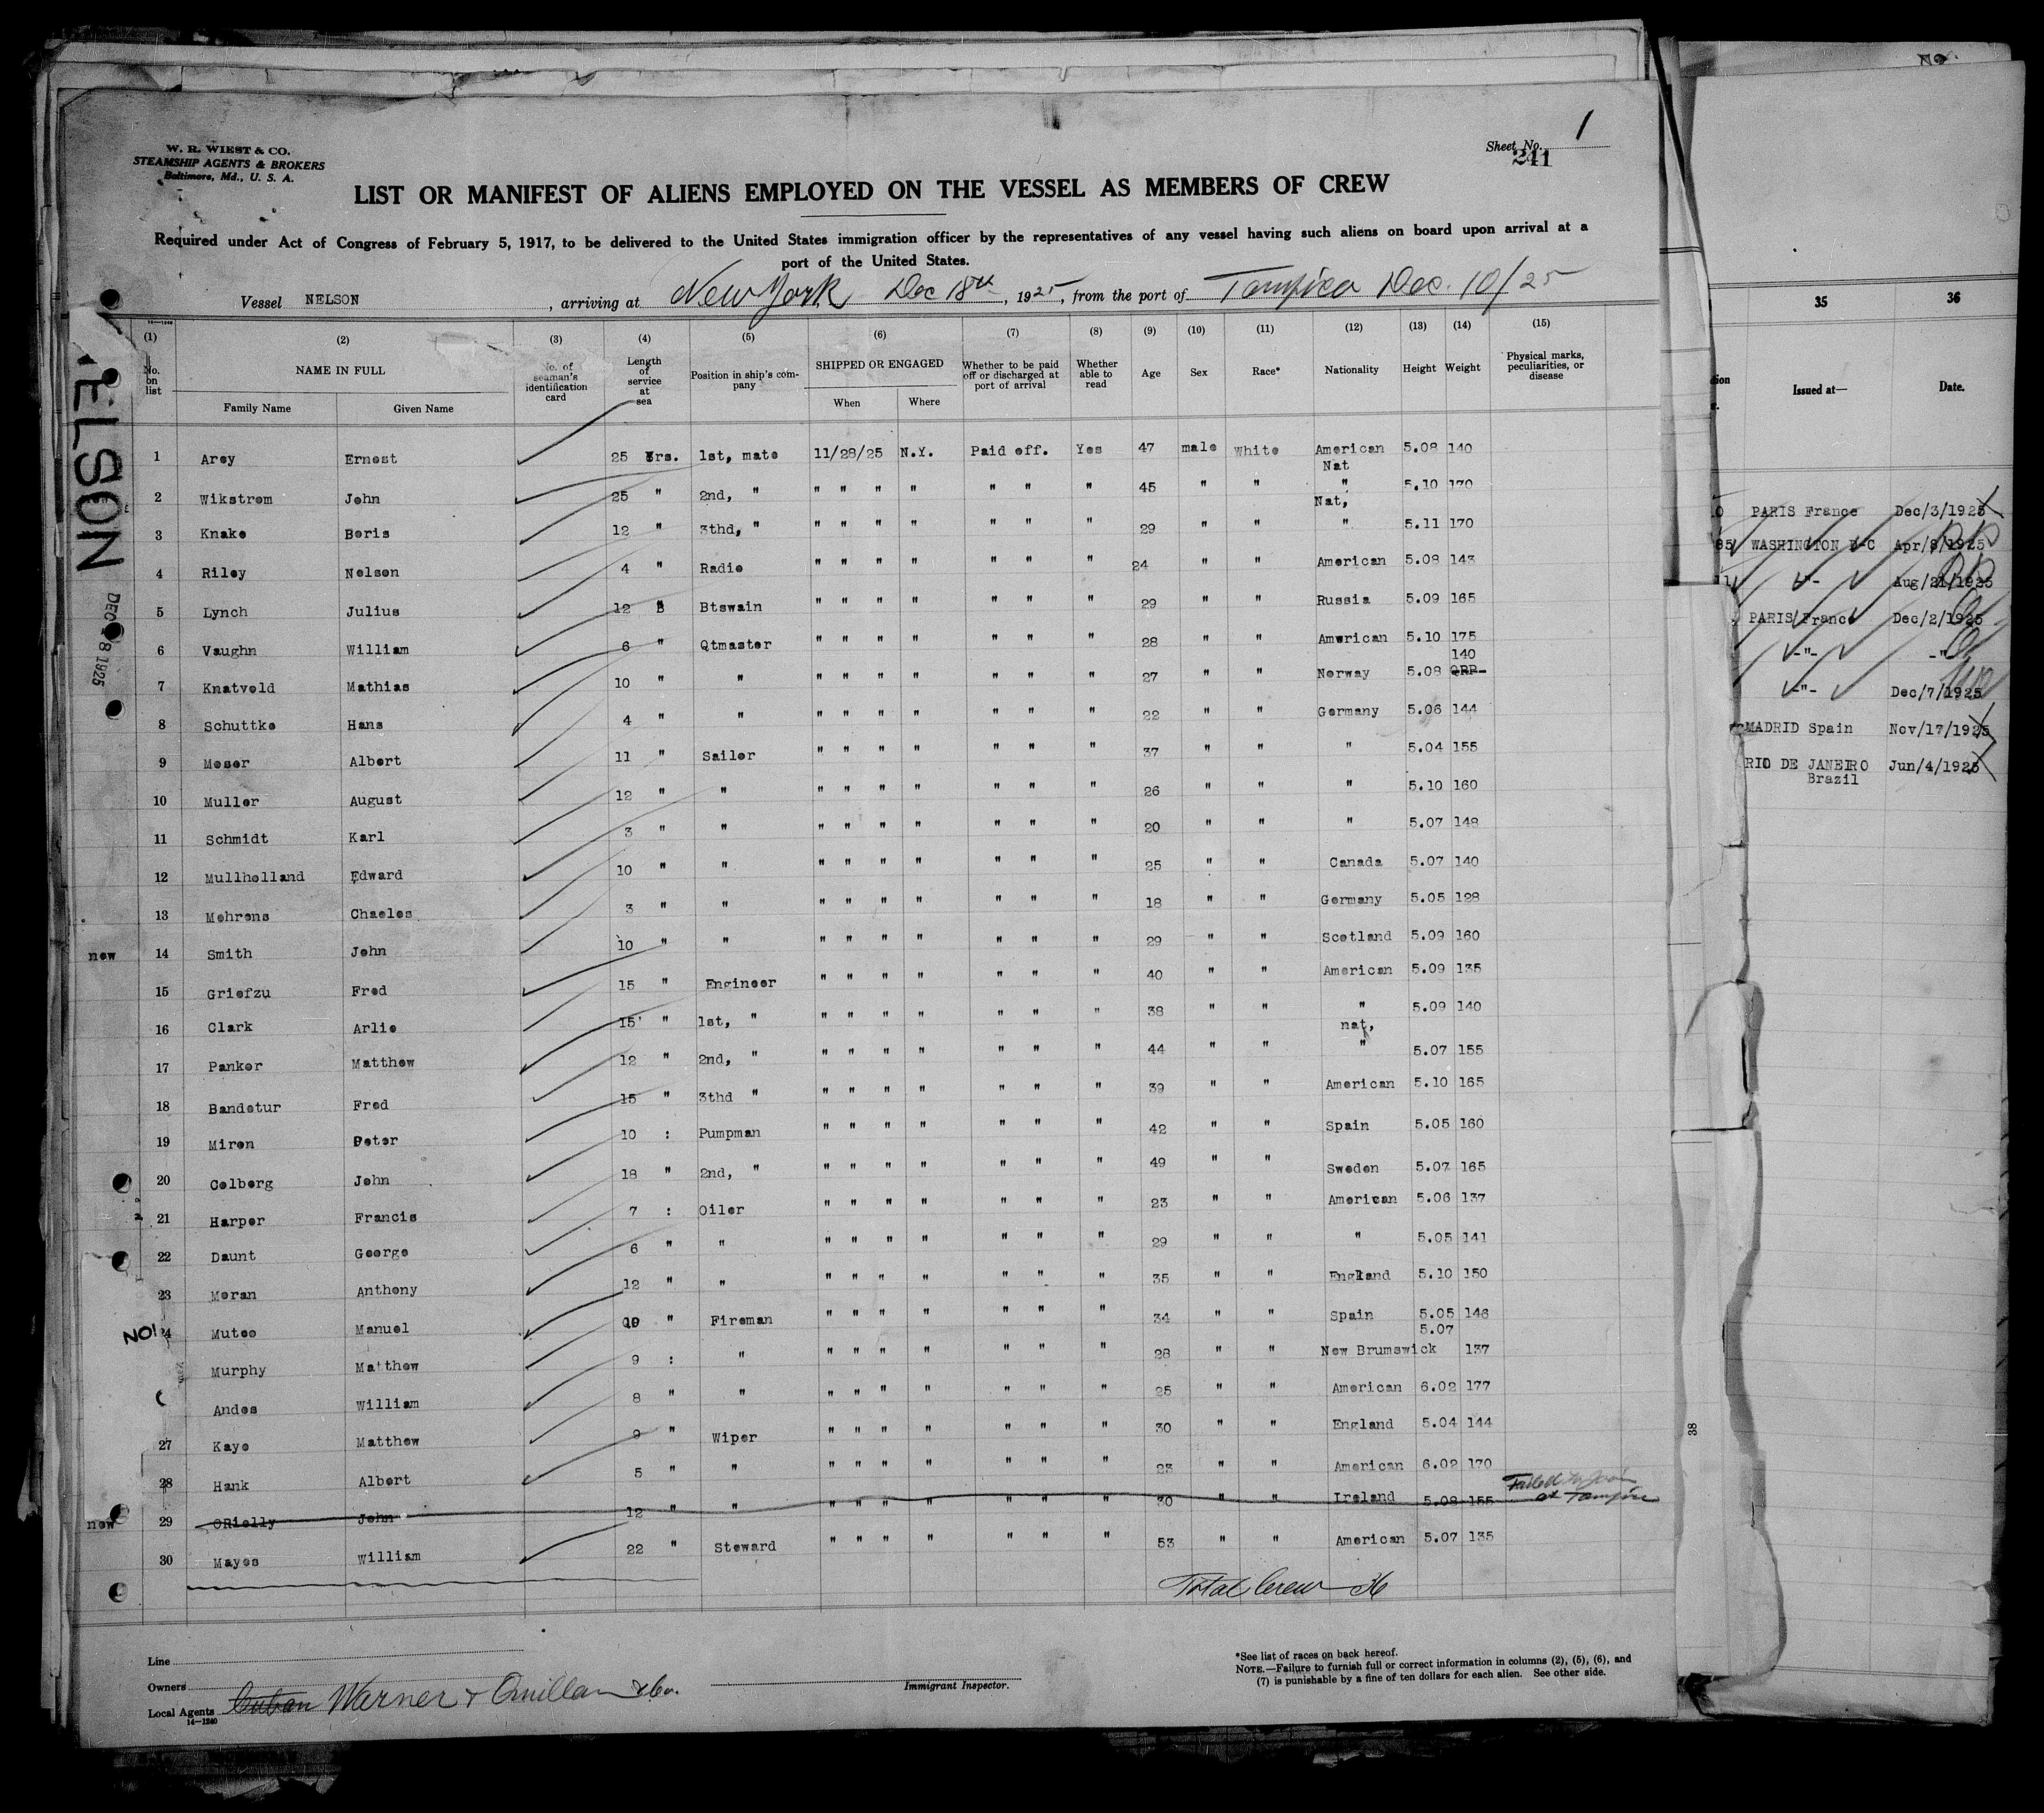 W. R. WIEST & CO.
STEAMSHIP AGENTS & BROKERS
Baltimore, Md., U. S. A.
Sheet No. 1
241
LIST OR MANIFEST OF ALIENS EMPLOYED ON THE VESSEL AS MEMBERS OF CREW
Required under Act of Congress of February 5, 1917, to be delivered to the United States immigration officer by the representatives of any vessel having such aliens on board upon arrival at a
port of the United States.
Vessel NELSON, arriving at New York Dec 18th, 1925, from the port of Tampico Dec. 10/25
(1) (2) (3) (4) (5) (6) (7) (8) (9) (10) (11) (12) (13) (14) (15)
No. on list
NAME IN FULL
Family Name Given Name
No. of seaman's identification card
Length of service at sea
Position in ship's company
SHIPPED OR ENGAGED
When Where
Whether to be paid off or discharged at port of arrival
Whether able to read
Age Sex Race* Nationality Height Weight
Physical marks, peculiarities, or disease
1 Arey Ernest 25 Yrs. 1st, mate 11/28/25 N.Y. Paid off. Yes 47 male White American 5.08 140
Nat
2 Wikstrom John 25 " 2nd, " " " " " " " " 45 " " " 5.10 170
Nat,
3 Knake Boris 12 " 3thd, " " " " " " " " 29 " " " 5.11 170
4 Riley Nelson 4 " Radio " " " " " " " 24 " " American 5.08 143
5 Lynch Julius 12 " Btswain " " " " " " " 29 " " Russia 5.09 165
6 Vaughn William 6 " Qtmaster " " " " " " " 28 " " American 5.10 175
140
7 Knatvold Mathias 10 " " " " " " " " " 27 " " Norway 5.08
8 Schuttke Hans 4 " " " " " " " " " 22 " " Germany 5.06 144
9 Moser Albert 11 " Sailor " " " " " " " 37 " " " 5.04 155
10 Muller August 12 " " " " " " " " " 26 " " " 5.10 160
11 Schmidt Karl 3 " " " " " " " " " 20 " " " 5.07 148
12 Mullholland Edward 10 " " " " " " " " " 25 " " Canada 5.07 140
13 Mehrens Chaeles 3 " " " " " " " " " 18 " " Germany 5.05 128
new 14 Smith John 10 " " " " " " " " " 29 " " Scotland 5.09 160
15 Griefzu Fred 15 " Engineer " " " " " " " 40 " " American 5.09 135
16 Clark Arlie 15 " 1st, " " " " " " " " 38 " " " 5.09 140
nat,
17 Panker Matthew 12 " 2nd, " " " " " " " " 44 " " " 5.07 155
18 Bandetur Fred 15 " 3thd " " " " " " " " 39 " " American 5.10 165
19 Miron Peter 10 : Pumpman " " " " " " " 42 " " Spain 5.05 160
20 Colberg John 18 " 2nd, " " " " " " " " 49 " " Sweden 5.07 165
21 Harper Francis 7 : Oiler " " " " " " " 23 " " American 5.06 137
22 Daunt George 6 " " " " " " " " " 29 " " " 5.05 141
23 Moran Anthony 12 " " " " " " " " " 35 " " England 5.10 150
24 Muteo Manuel 10 " Fireman " " " " " " " 34 " " Spain 5.05 146
5.07
Murphy Matthew 9 : " " " " " " " " 28 " " New Brumswick 137
Andes William 8 " " " " " " " " " 25 " " American 6.02 177
27 Kaye Matthew 9 " Wiper " " " " " " " 30 " " England 5.04 144
28 Hank Albert 5 " " " " " " " " " 23 " " American 6.02 170
new 29 ORielly John 12 " " " " " " " " " 30 " " Ireland 5.08 155 Failed to join
at Tampico
30 Mayes William 22 " Steward " " " " " " " 53 " " American 5.07 135
Total Crew 36
Line
Owners
Local Agents Cuban Warner & Quillan & Co.
14—1240
Immigrant Inspector.
*See list of races on back hereof.
NOTE.—Failure to furnish full or correct information in columns (2), (5), (6), and
(7) is punishable by a fine of ten dollars for each alien. See other side.
ELSON
DEC 18 1925
35 36
Issued at— Date.
PARIS France Dec/3/1925
WASHINGTON D-C Apr/8/1925
-"- Aug/21/1925
PARIS France Dec/2/1925
-"- -"-
-"- Dec/7/1925
MADRID Spain Nov/17/1925
RIO DE JANEIRO Jun/4/1925
Brazil
38